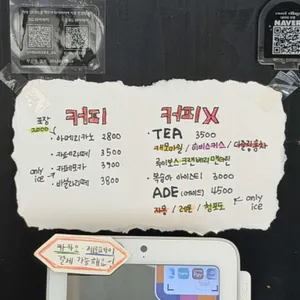 커피
포장
2000
· 아메리카노 2800
· 카페라떼 3500
· 카페모카 3900
only ice
· 바닐라라떼 3800
커피X
· TEA 3500
캐모마일 / 히비스커스 /
루이보스 크랜베리 만다린
· 복숭아 아이스티 3000
ADE (에이드) 4500
only ice
자몽 / 레몬 / 청포도
카카오
결제 가능해요~
NAVER